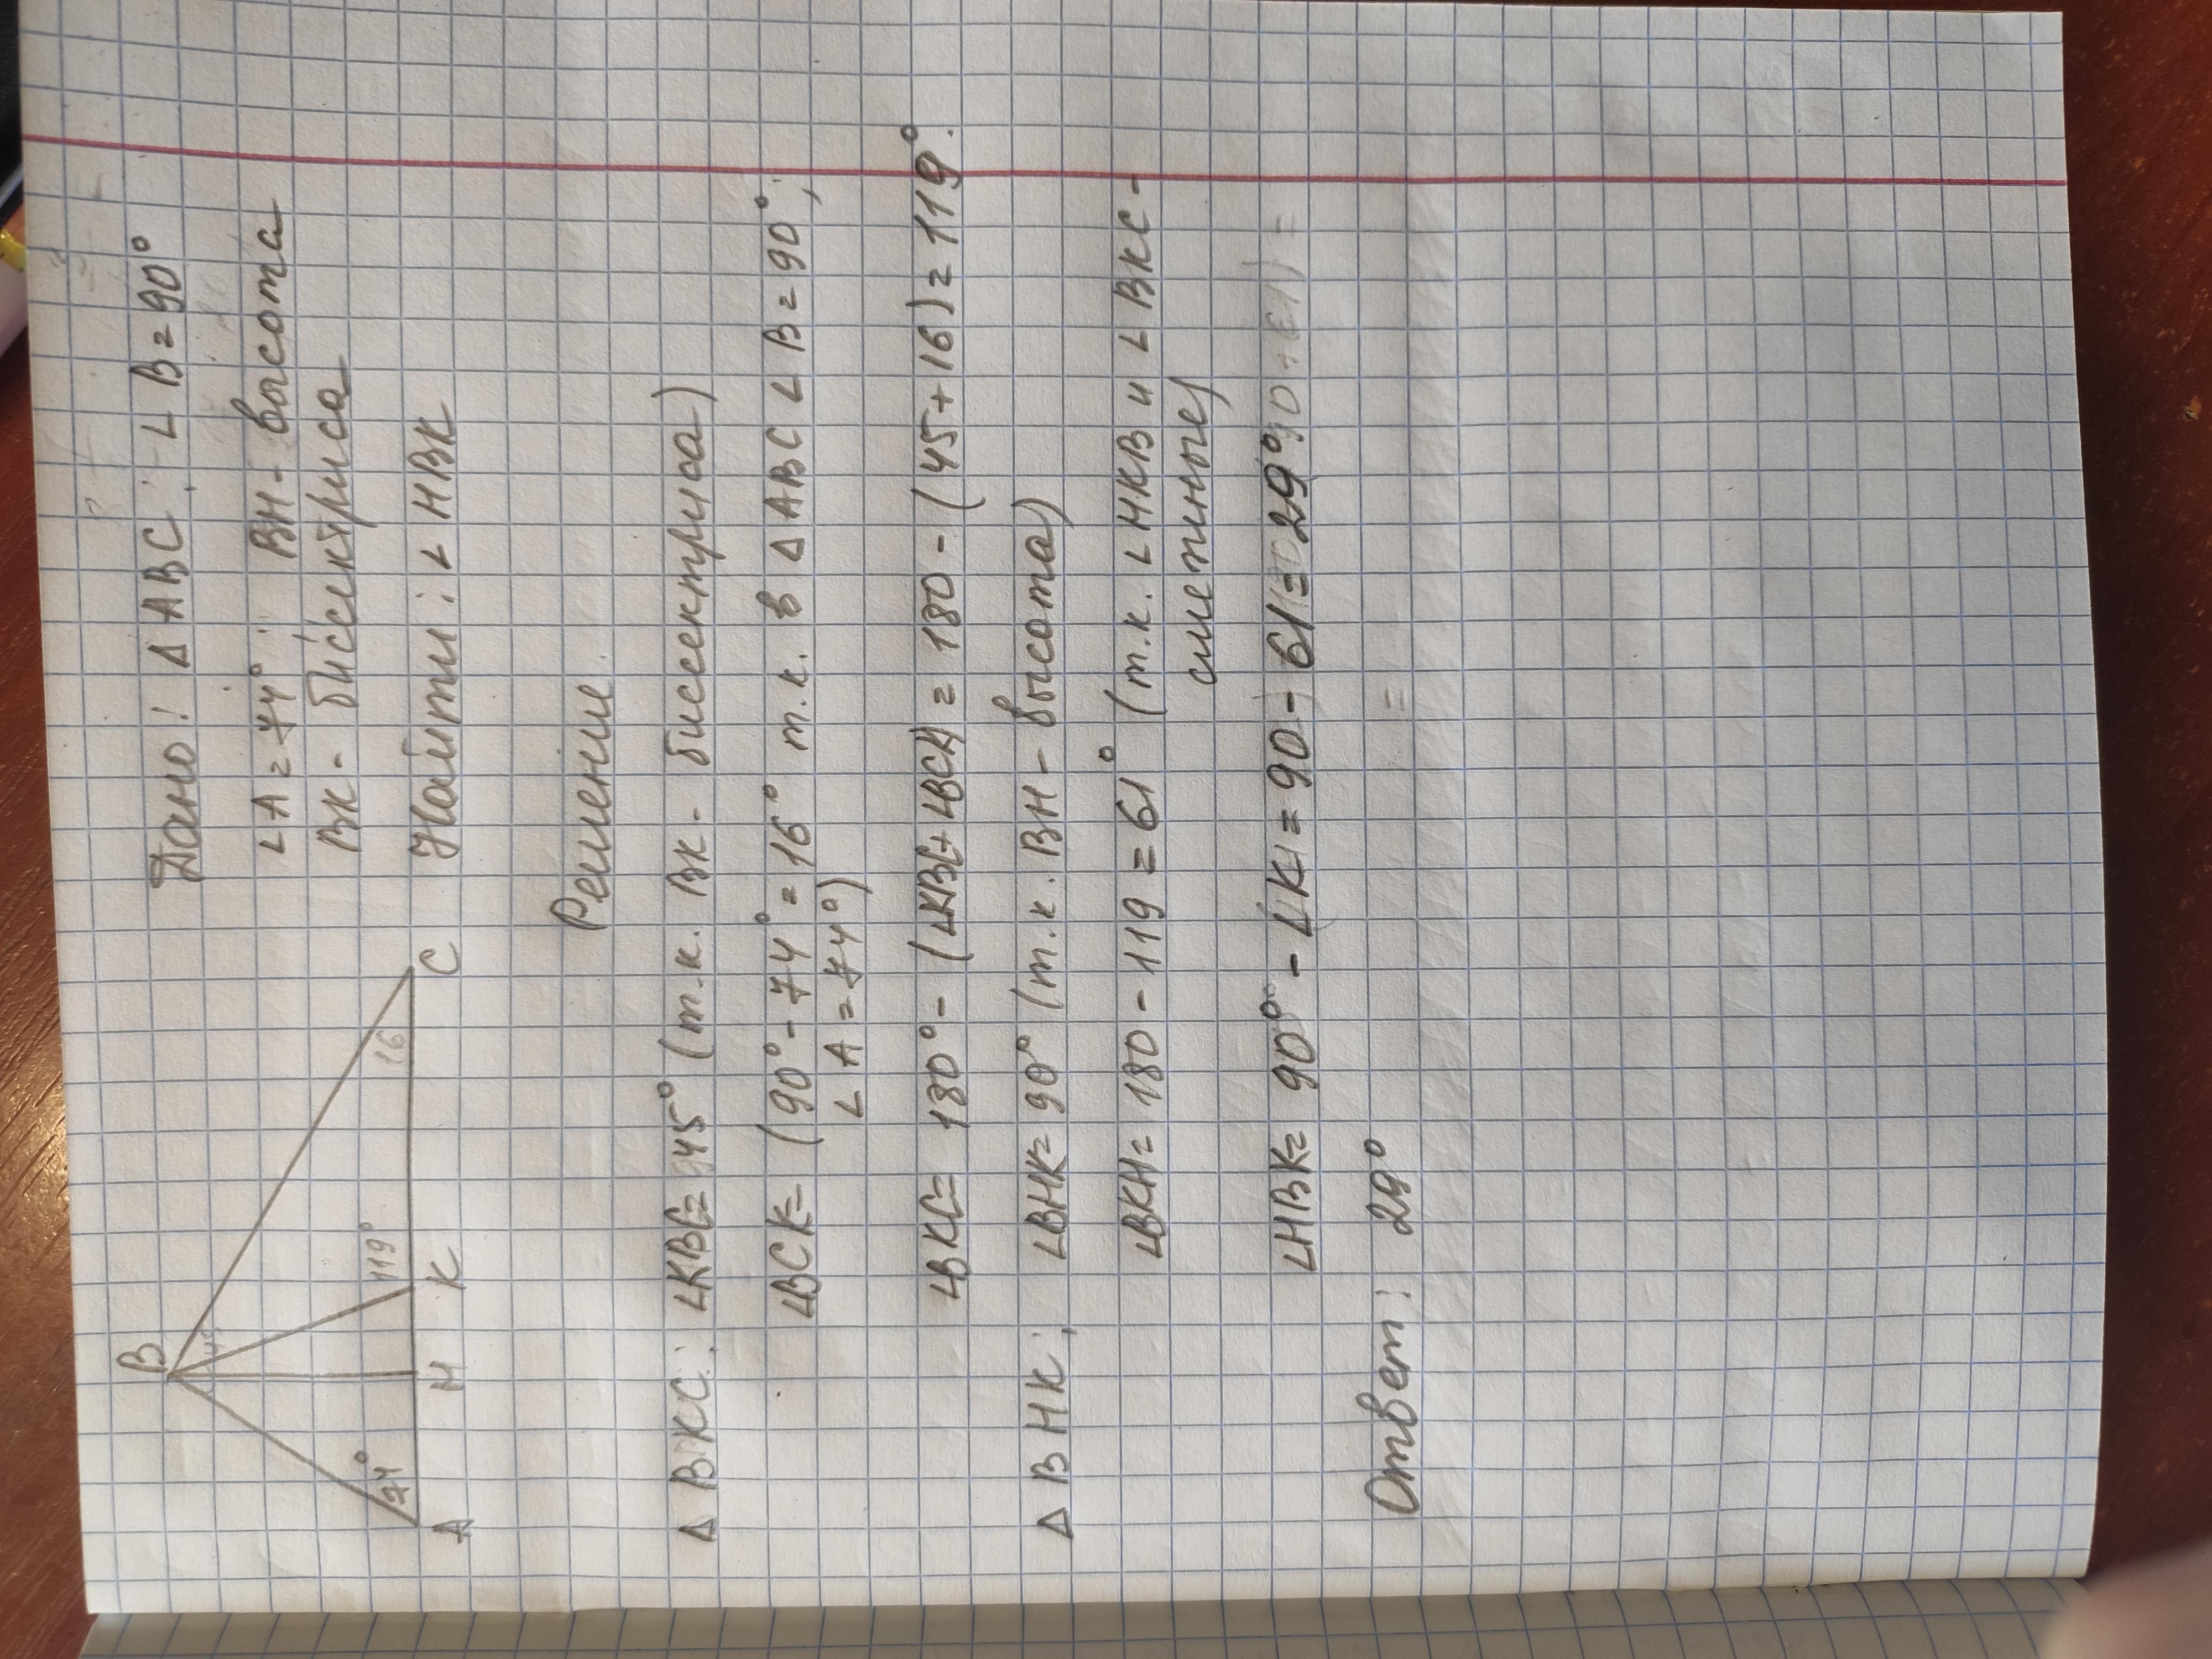 Дано: ΔABC; ∠B=90°
∠A=74°; BH- высота
BK- биссектриса
Найти: ∠HBK
B
45
74°
119°
16
A
H
K
C
Решение.
ΔBKC: ∠KBC= 45° (т.к. BK- биссектриса)
∠BCK= (90°-74°=16° т.к. в ΔABC ∠B=90°;
∠A=74°)
∠BKC= 180°- (∠KBC+∠BCK)=180-(45+16)=119°.
ΔBHK: ∠BHK=90° (т.к. BH- высота)
∠BKH=180-119=61° (т.к. ∠HKB и ∠BKC-
смежные)
∠HBK= 90°-∠K=90-61=29°
Ответ: 29°